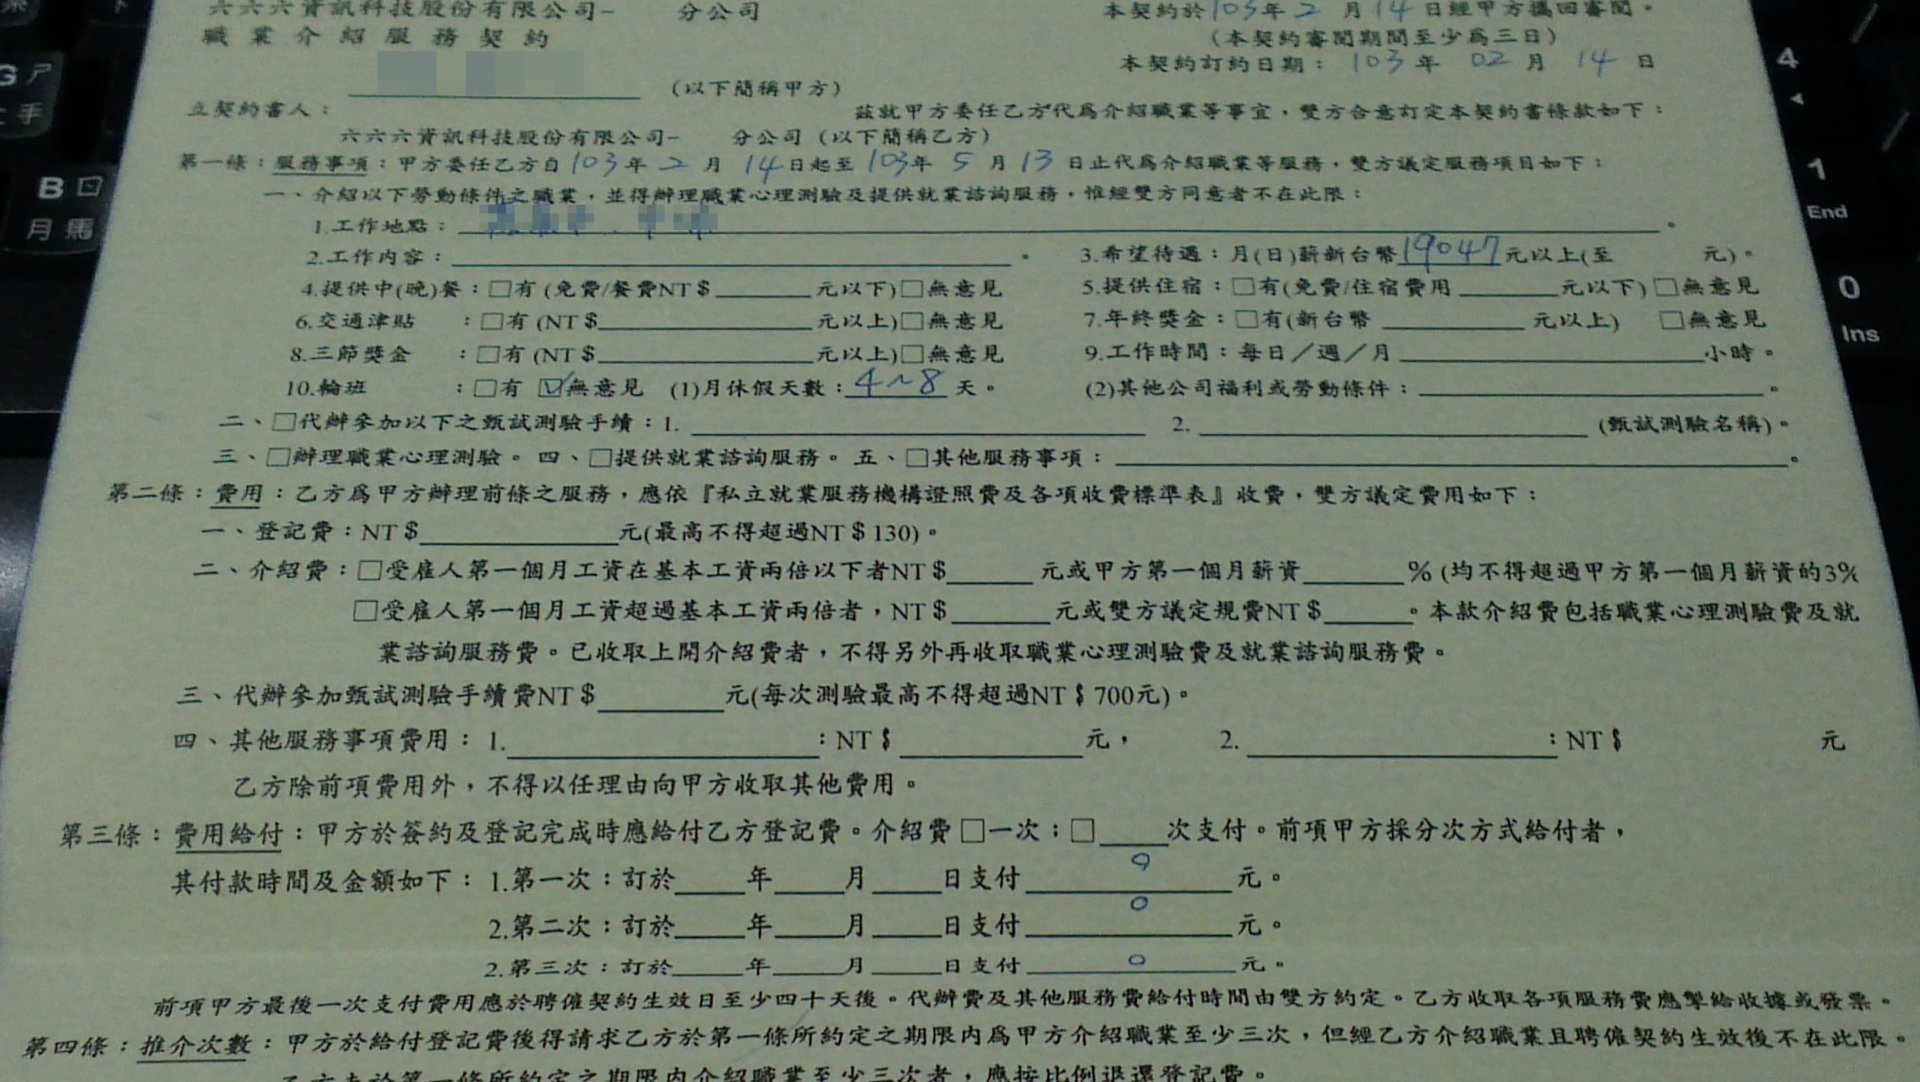 六六六資訊科技股份有限公司- 分公司
職業介紹服務契約
本契約於103年2月14日經甲方攜回審閱。
(本契約審閱期間至少為三日)
本契約訂約日期：103年02月14日
(以下簡稱甲方)
立契約書人： 茲就甲方委任乙方代為介紹職業等事宜，雙方合意訂定本契約書條款如下：
六六六資訊科技股份有限公司- 分公司 (以下簡稱乙方)
第一條：服務事項：甲方委任乙方自103年2月14日起至103年5月13日止代為介紹職業等服務，雙方議定服務項目如下：
一、介紹以下勞動條件之職業，並得辦理職業心理測驗及提供就業諮詢服務，惟經雙方同意者不在此限：
1.工作地點： 。
2.工作內容： 。 3.希望待遇：月(日)薪新台幣19047元以上(至 元)。
4.提供中(晚)餐：□有 (免費/餐費NT＄ 元以下)□無意見 5.提供住宿：□有(免費/住宿費用 元以下) □無意見
6.交通津貼 ：□有 (NT＄ 元以上)□無意見 7.年終獎金：□有(新台幣 元以上) □無意見
8.三節獎金 ：□有 (NT＄ 元以上)□無意見 9.工作時間：每日／週／月 小時。
10.輪班 ：□有 ☑無意見 (1)月休假天數：4~8天。 (2)其他公司福利或勞動條件： 。
二、□代辦參加以下之甄試測驗手續：1. 2. (甄試測驗名稱)。
三、□辦理職業心理測驗。四、□提供就業諮詢服務。五、□其他服務事項： 。
第二條：費用：乙方為甲方辦理前條之服務，應依『私立就業服務機構證照費及各項收費標準表』收費，雙方議定費用如下：
一、登記費：NT＄ 元(最高不得超過NT＄130)。
二、介紹費：□受雇人第一個月工資在基本工資兩倍以下者NT＄ 元或甲方第一個月薪資 % (均不得超過甲方第一個月薪資的3%
□受雇人第一個月工資超過基本工資兩倍者，NT＄ 元或雙方議定規費NT＄ 。本款介紹費包括職業心理測驗費及就
業諮詢服務費。已收取上開介紹費者，不得另外再收取職業心理測驗費及就業諮詢服務費。
三、代辦參加甄試測驗手續費NT＄ 元(每次測驗最高不得超過NT＄700元)。
四、其他服務事項費用：1. ：NT＄ 元， 2. ：NT＄ 元
乙方除前項費用外，不得以任理由向甲方收取其他費用。
第三條：費用給付：甲方於簽約及登記完成時應給付乙方登記費。介紹費□一次；□ 次支付。前項甲方採分次方式給付者，
其付款時間及金額如下：1.第一次：訂於 年 月 日支付 0 元。
2.第二次：訂於 年 月 日支付 0 元。
2.第三次：訂於 年 月 日支付 0 元。
前項甲方最後一次支付費用應於聘僱契約生效日至少四十天後。代辦費及其他服務費給付時間由雙方約定。乙方收取各項服務費應掣給收據或發票。
第四條：推介次數：甲方於給付登記費後得請求乙方於第一條所約定之期限內為甲方介紹職業至少三次，但經乙方介紹職業且聘僱契約生效後不在此限。
乙方未於第一條所約定之期限內介紹職業至少三次者，應按比例退還登記費。
4
1
End
0
Ins
G
手
B
月